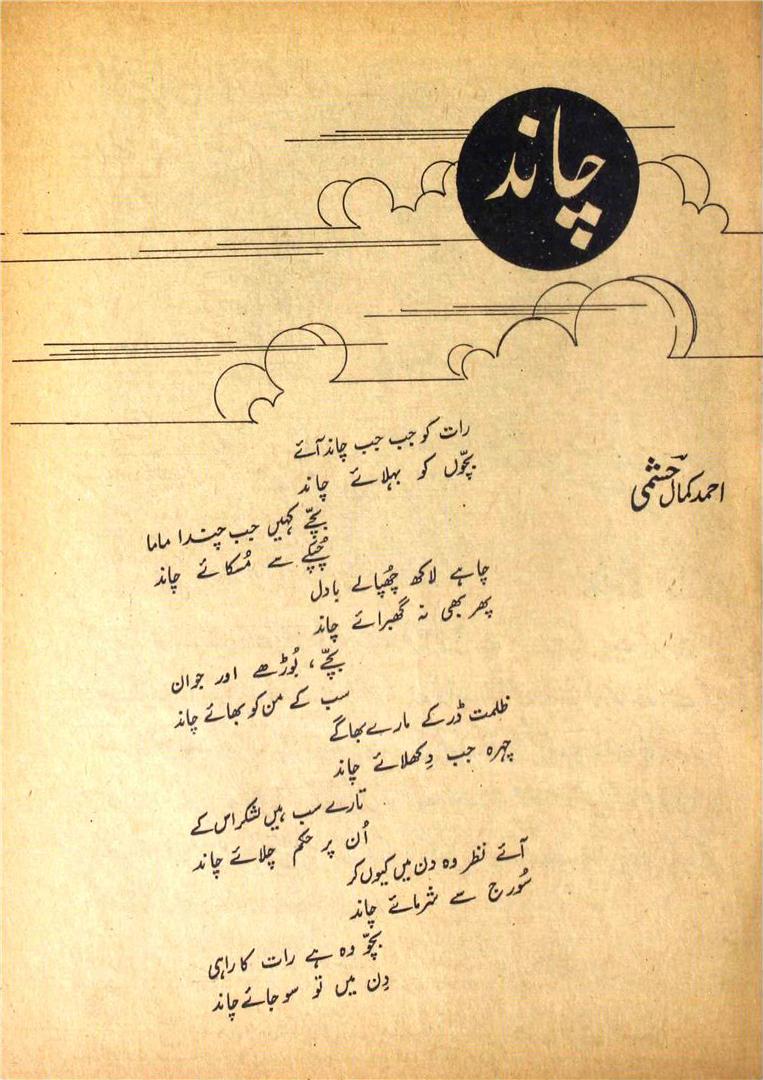 چاند
احمد کمال حشمی
رات کو جب جب چاند آئے
بچّوں کو بہلائے چاند
بچّے کہیں جب چندا ماما
چُپکے سے مُسکائے چاند
چاہے لاکھ چُھپالے بادل
پھر بھی نہ گھبرائے چاند
بچّے، بُوڑھے اور جوان
سب کے من کو بھائے چاند
ظلمت ڈر کے مارے بھاگے
چہرہ جب دِکھلائے چاند
تارے سب ہیں لشکر اس کے
اُن پر حکم چلائے چاند
آئے نظر وہ دن میں کیوں کر
سُورج سے شرمائے چاند
بچّو وہ ہے رات کا راہی
دِن میں تو سو جائے چاند